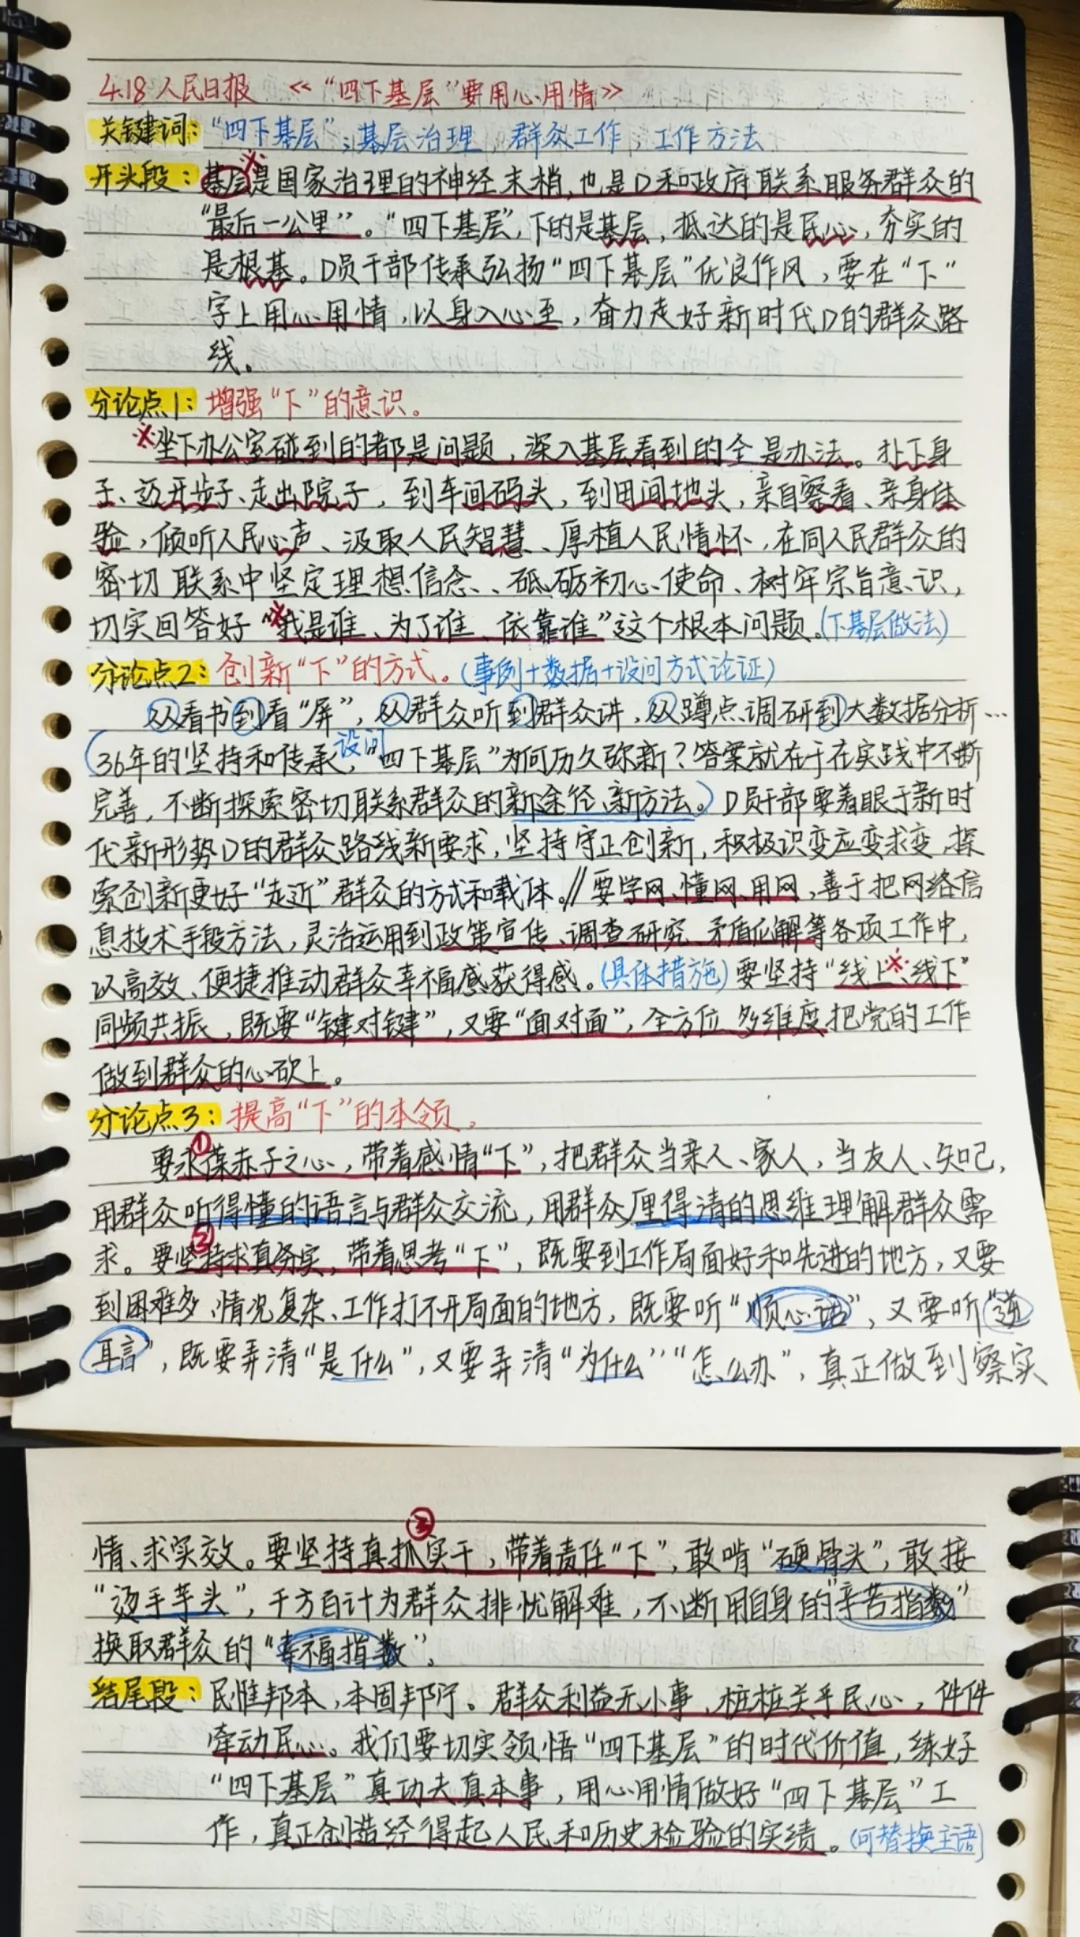 4.18 人民日报 《“四下基层”要用心用情》
关键词：“四下基层”；基层治理；群众工作；工作方法
开头段：基层是国家治理的神经末梢，也是D和政府联系服务群众的
“最后一公里”。“四下基层”，下的是基层，抵达的是民心，夯实的
是根基。D员干部传承弘扬“四下基层”优良作风，要在“下”
字上用心用情，以身入心至，奋力走好新时代D的群众路
线。
分论点1：增强“下”的意识。
※坐下办公室碰到的都是问题，深入基层看到的全是办法。扑下身
子、迈开步子、走出院子，到车间码头，到田间地头，亲自察看、亲身体
验，倾听人民心声、汲取人民智慧、厚植人民情怀，在同人民群众的
密切联系中坚定理想信念、砥砺初心使命、树牢宗旨意识，
切实回答好“我是谁、为了谁、依靠谁”这个根本问题。（下基层做法）
分论点2：创新“下”的方式。（事例+数据+设问方式论证）
从看书到看“屏”，从群众听到群众讲，从蹲点调研到大数据分析…
设问
36年的坚持和传承，“四下基层”为何历久弥新？答案就在于在实践中不断
完善，不断探索密切联系群众的新途径、新方法。）D员干部要着眼于新时
代新形势D的群众路线新要求，坚持守正创新，积极识变应变求变，探
索创新更好“走近”群众的方式和载体。//要学网、懂网、用网，善于把网络信
息技术手段方法，灵活运用到政策宣传、调查研究、矛盾化解等各项工作中，
以高效、便捷推动群众幸福感获得感。（具体措施）要坚持“线上※线下”
同频共振，既要“键对键”，又要“面对面”，全方位 多维度把党的工作
做到群众的心砍上。
分论点3：提高“下”的本领。
①
要永葆赤子之心，带着感情“下”，把群众当亲人、家人，当友人、知己，
用群众听得懂的语言与群众交流，用群众厘得清的思维理解群众需
②
求。要坚持求真务实，带着思考“下”，既要到工作局面好和先进的地方，又要
到困难多、情况复杂、工作打不开局面的地方，既要听“顺心话”，又要听“逆
耳言”，既要弄清“是什么”，又要弄清“为什么”“怎么办”，真正做到察实
③
情、求实效。要坚持真抓实干，带着责任“下”，敢啃“硬骨头”，敢接
“烫手芋头”，千方百计为群众排忧解难，不断用自身的“辛苦指数”
换取群众的“幸福指数”。
结尾段：民惟邦本，本固邦宁。群众利益无小事，桩桩关乎民心，件件
牵动民心。我们要切实领悟“四下基层”的时代价值，练好
“四下基层”真功夫真本事，用心用情做好“四下基层”工
作，真正创造经得起人民和历史检验的实绩。（可替换主语）